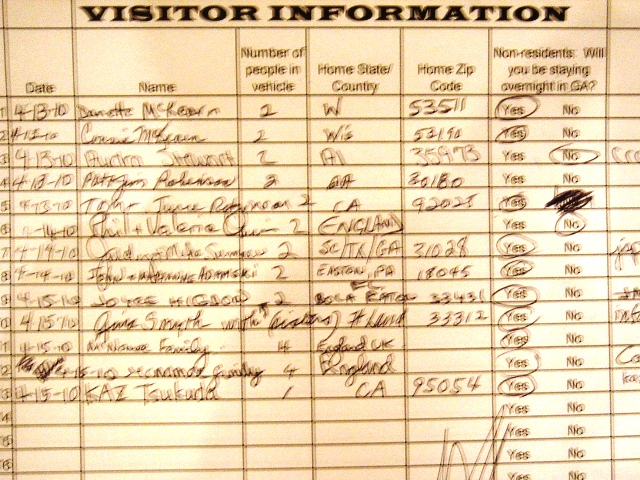 VISITOR INFORMATION
Date Name Number of people in vehicle Home State/ Country Home Zip Code Non-residents: Will you be staying overnight in GA?
1 4-13-10 Danette McKearn 2 W 53511 Yes No
2 4-13-10 Connie 2 Wis Yes No
3 4-13-10 Stewart 2 Al 35973 Yes No
4 4-13-10 Robinson 2 GA 30180 Yes No
5 4-13-10 Tom + June Robinson 2 CA 92028 Yes
6 4-14-10 Phil + Valerie 2 ENGLAND Yes No
7 4-14-10 Mike 2 SC/TX/GA 31028 Yes No
8 4-14-10 JOHN 2 EASTON, PA 18045 Yes No
9 4-15-10 JOYCE HIGDON 2 BOCA RATON FL 33431 Yes No
4-15-10 Smyth 33312 Yes No
4-15-10 Family 4 England UK Yes No
4-15-10 family 4 England Yes No
4-15-10 KAZ Tsukuda 1 CA 95054 Yes No
Yes No
Yes No
Yes No